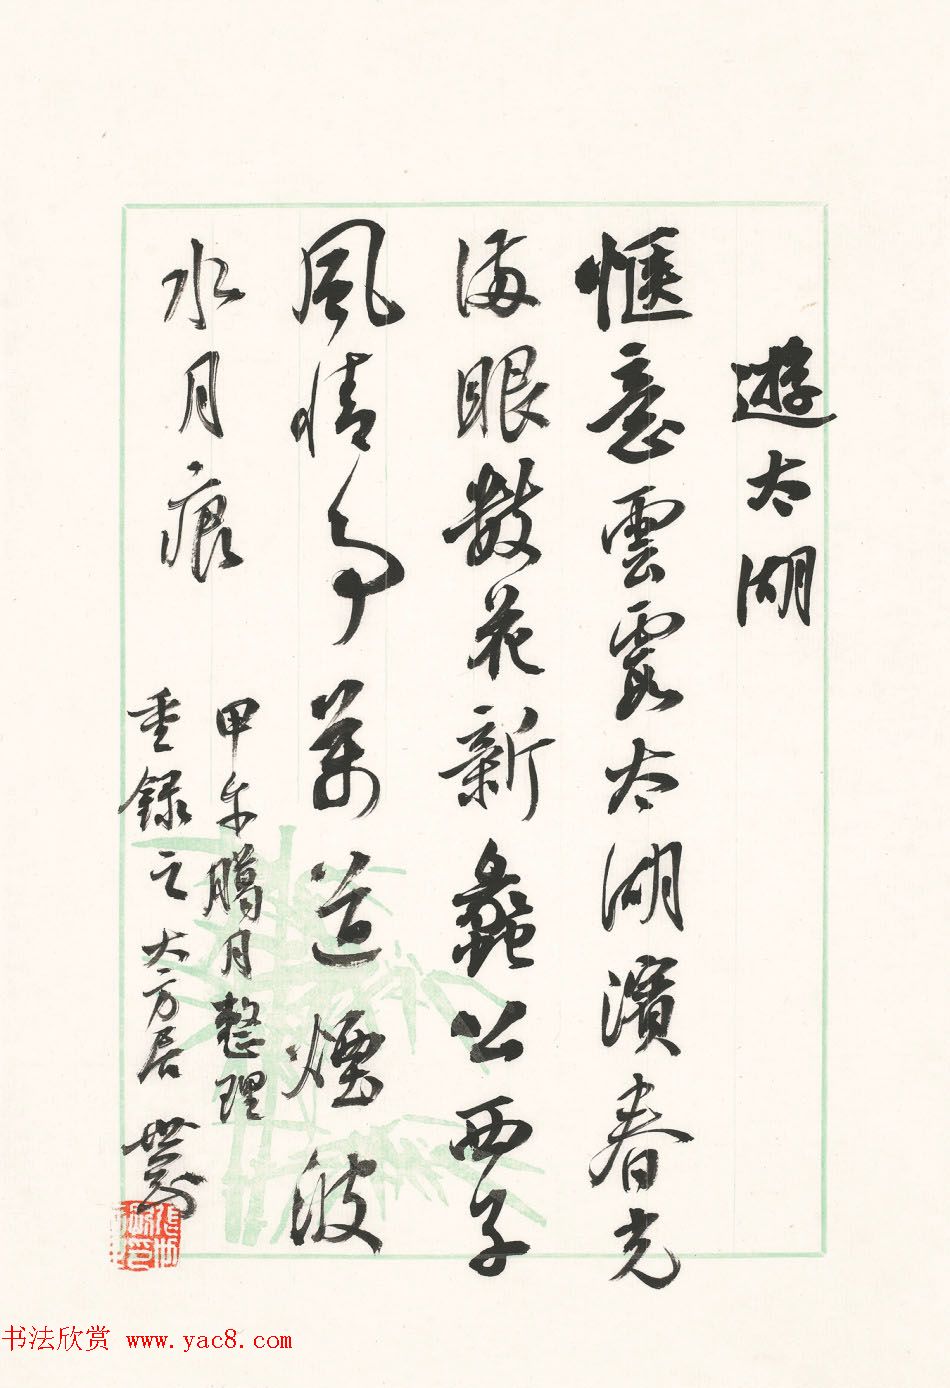 遊太湖
愜意雲霞太湖濱春光
滿眼数花新蠡公西子
風情事萬道煙波
水月痕
甲午臈月整理
重録之大方居世
书法欣赏 www.yac8.com